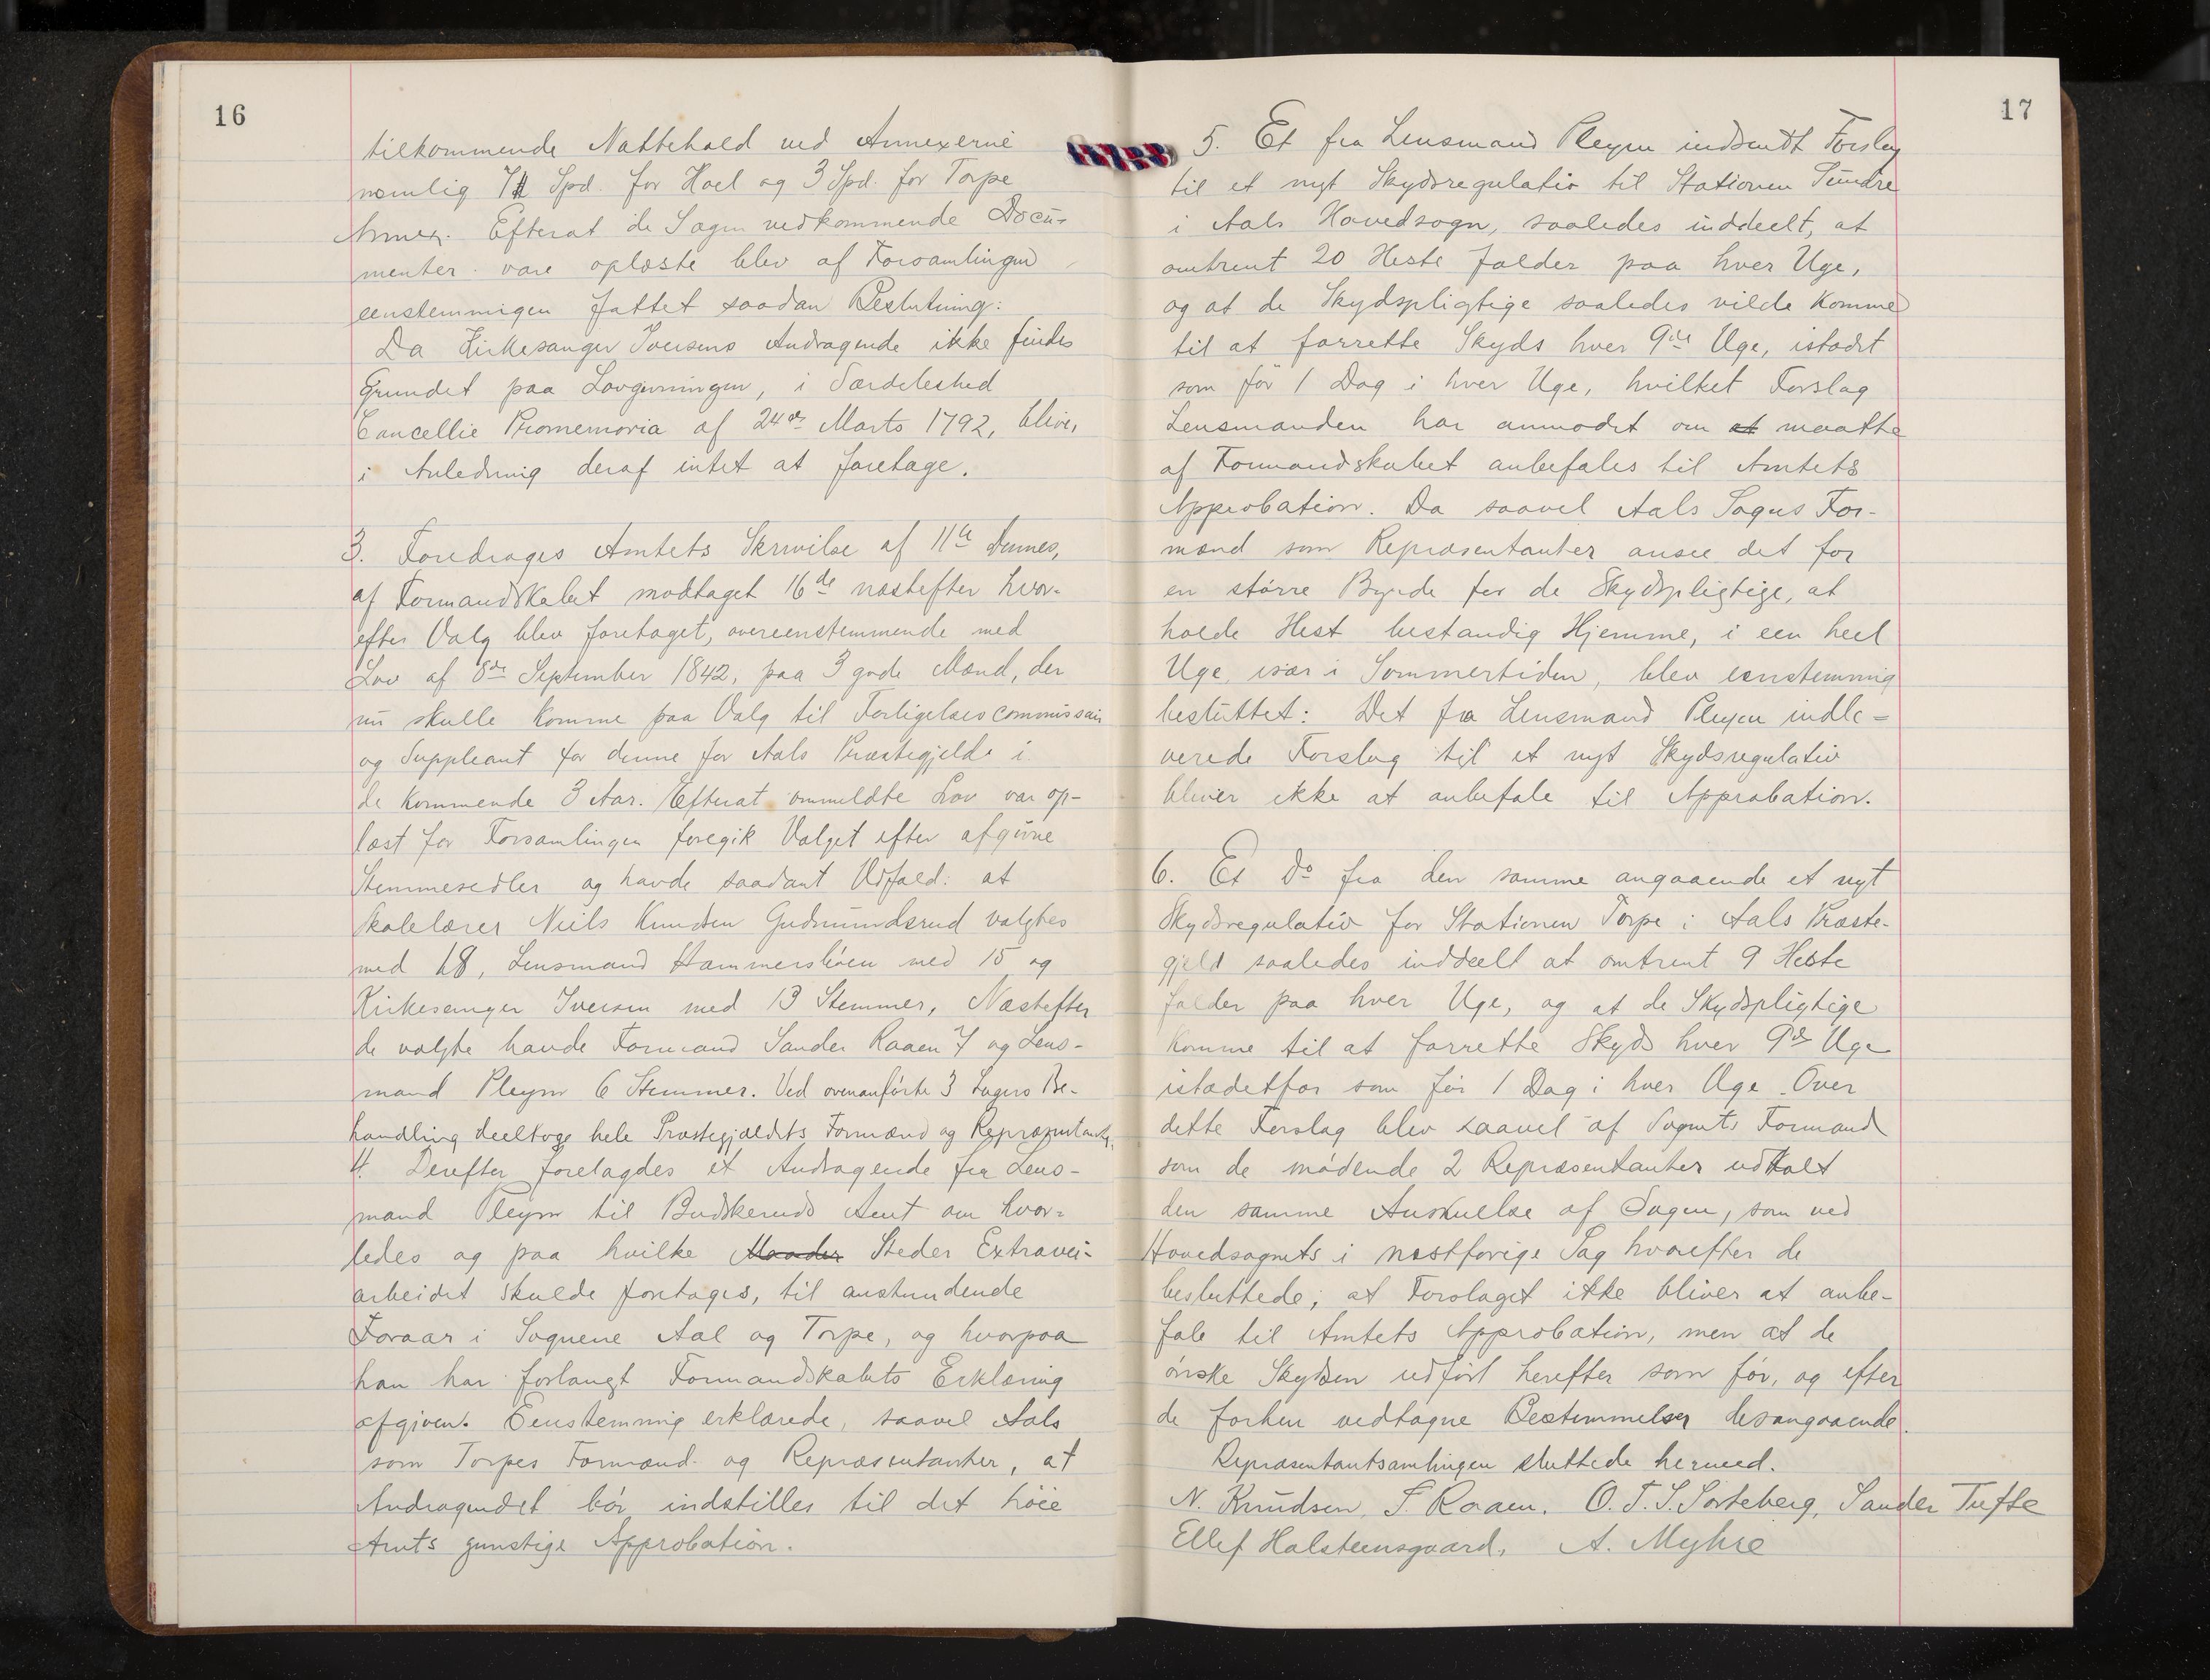 16
tilkommende Nattehold ved Annexerne
nemlig 7 Spd. for Hoel og 3 Spd. for Torpe
Annex. Efterat de Sagen vedkommende Docu-
menter vare oplæste blev af Forsamlingen
eenstemmigen fattet saadan Beslutning:
Da Kirkesanger Iversens Andragende ikke findes
grundet paa Lovgivningen, i Særdeleshed
Cancellie Promemoria af 24de Marts 1792, bliver
i Anledning deraf intet at foretage.
3. Foredroges Amtets Skrivelse af 11te dennes,
af Formandskabet modtaget 16de næstefter hvor-
efter Valg blev foretaget, overeenstemmende med
Lov af 8de September 1842, paa 3 gode Mænd, der
nu skulle komme paa Valg til Forligelsescommissair
og Suppleant for denne for Aals Præstegjeld i
de kommende 3 Aar. Efterat ommeldte Lov var op-
læst for Forsamlingen foregik Valget efter afgivne
Stemmesedler og havde saadant Udfald: at
Skolelærer Neils Knudsen Gudmundsrud valgtes
med 18, Lensmand Hammersbøen med 15 og
Kirkesanger Iversen med 13 Stemmer, Næstefter
de valgte havde Formand Sander Raaen 7 og Lens-
mand Pleym 6 Stemmer. Ved ovenanførte 3 Sagers Be-
handling deeltoge hele Præstegjældets Formænd og Repræsentanter.
4. Derefter forelagdes et Andragende fra Lens-
mand Pleym til Budskeruds Amt om hvor-
ledes og paa hvilke Maader Steder Extravei-
arbeidet skulde foretages, til anstundende
Foraar i Sognene Aal og Torpe, og hvorpaa
han har forlangt Formandskabets Erklæring
afgiven. Eenstemmig erklærede, saavel Aals
som Torpes Formænd og Repræsentanter, at
Andragendet bør indstilles til det høie
Amts gunstige Approbation.
17
5. Et fra Lensmand Pleym indsendt Forslag
til et nyt Skydsregulativ til Stationen Sundre
i Aals Hovedsogn, saaledes inddeelt, at
omtrent 20 Heste falder paa hver Uge,
og at de Skydspligtige saaledes vilde komme
til at forrette Skyds hver 9de Uge, istædet
som før 1 Dag i hver Uge, hvilket Forslag
Lensmanden har anmodet om at maatte
af Formandskabet anbefales til Amtets
Approbation. Da saavel Aals Sogns For-
mænd som Repræsentanter ansee det for
en større Byrde for de Skydspligtige, at
holde Hest bestandig Hjemme, i een heel
Uge, især i Sommertiden, blev eenstemmig
besluttet: Det fra Lensmand Pleym indle=
verede Forslag til et nyt Skydsregulativ
bliver ikke at anbefale til Approbation.
6. Et Do fra den samme angaaende et nyt
Skydsregulativ for Stationen Torpe i Aals Præste-
gjeld saaledes inddeelt at omtrent 9 Heste
falder paa hver Uge, og at de Skydspligtige
komme til at forrette Skyds hver 9de Uge
istædetfor som før 1 Dag i hver Uge. Over
dette Forslag blev saavel af Sognets Formænd
som de mødende 2 Repræsentanter udtalt
den samme Anskuelse af Sagen, som ved
Hovedsognets i næstforige Sag hvorefter de
besluttede, at Forslaget ikke bliver at anbe-
fale til Amtets Approbation, men at de
ønske Skydsen udført herefter som før, og efter
de forhen vedtagne Bestemmelser desangaaende.
Repræsentantsamlingen sluttede hermed.
N. Knudsen, S. Raaen. O. T. S. Sorteberg, Sander Tufte
Ellef Halsteensgaard, A. Myhre